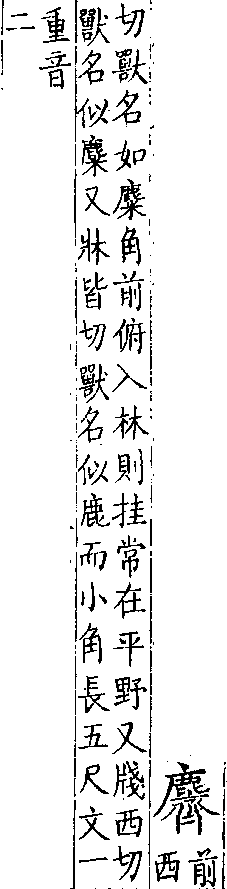 麡
前
西
切獸名如麋角前俯入林則挂常在平野又牋西切
獸名似麋又牀皆切獸名似鹿而小角長五尺文一
重音
二